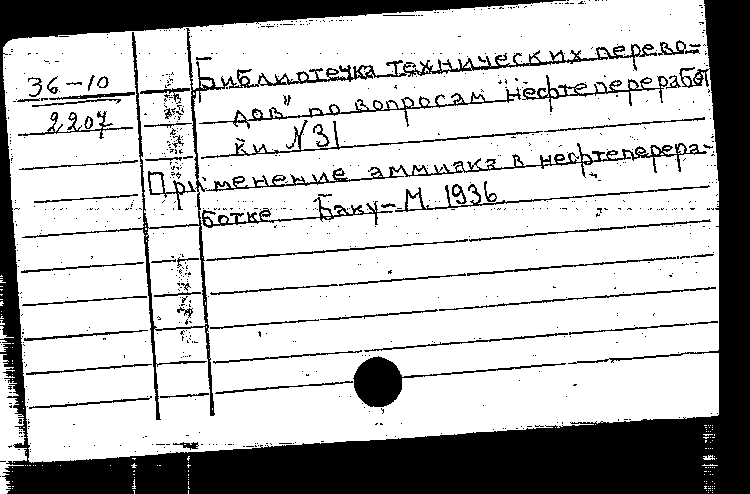 36-10
2207
Библиотечка технических перево-
дов" по вопросам "Нефтепереработ
ки. N 31
Применение аммиака в нефтеперера-
ботке Баку-М. 1936.